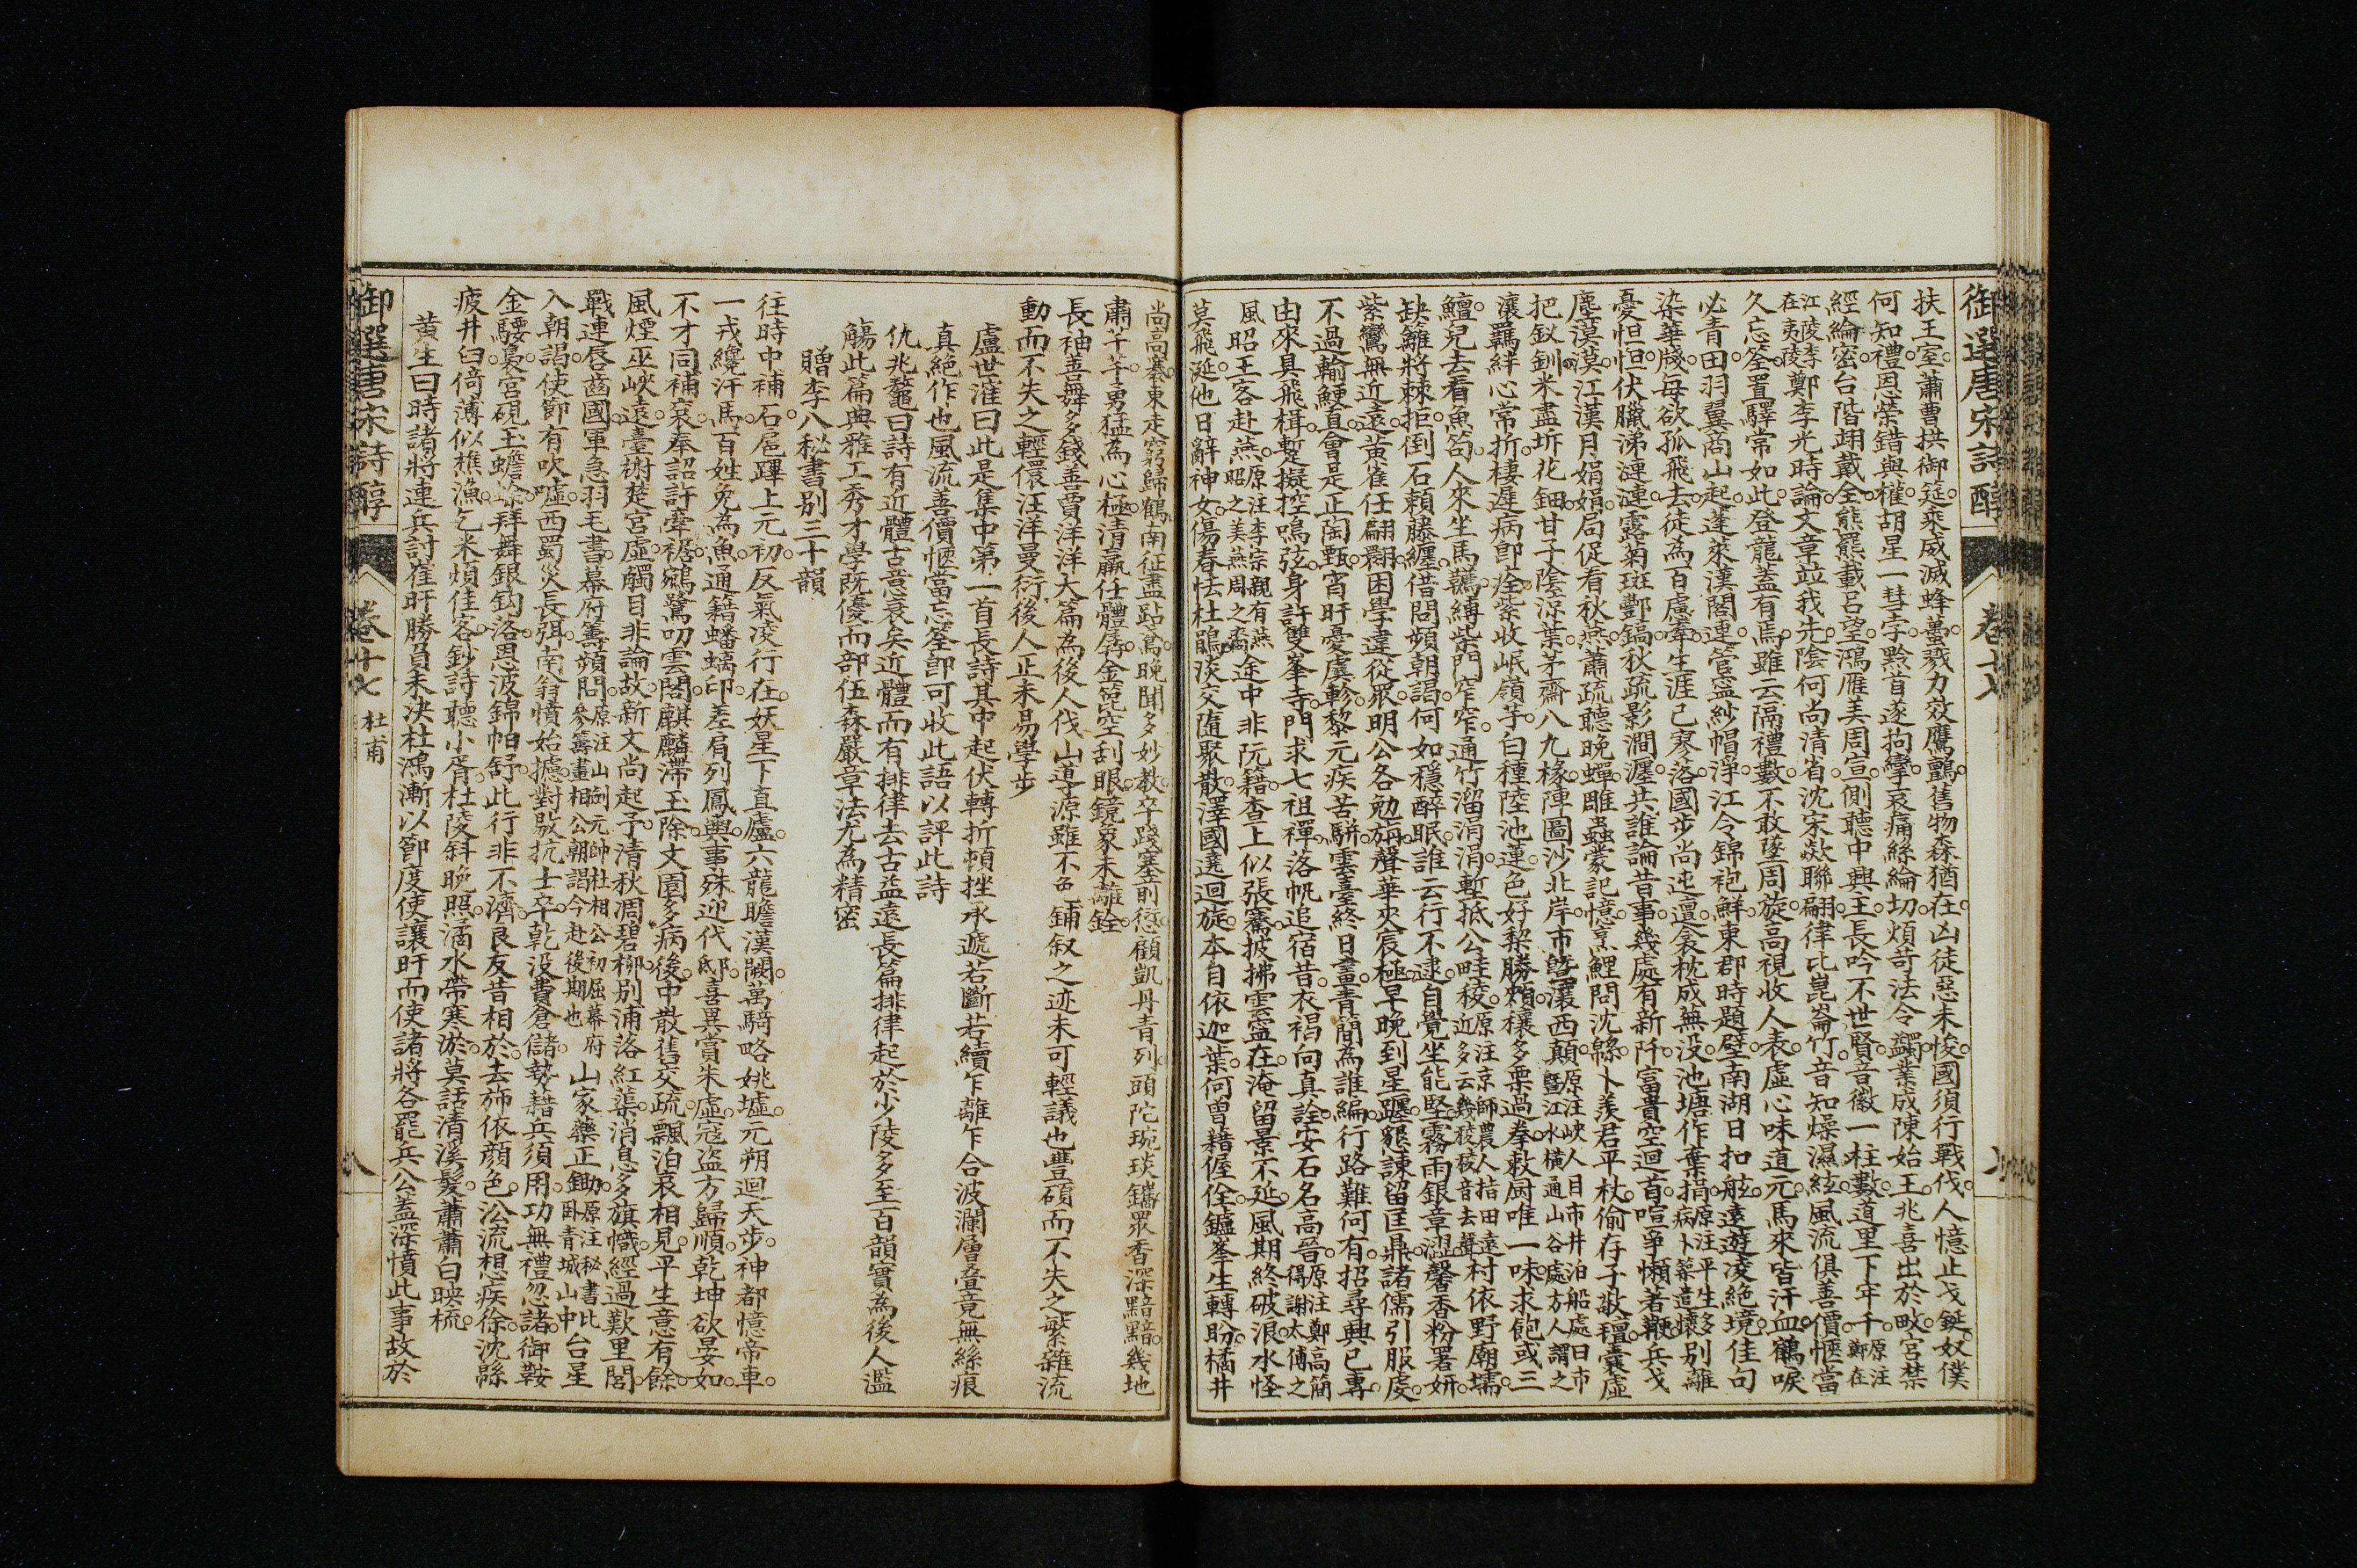 御選唐宋詩醇 卷十七
扶王室蕭曹拱御筵乘威滅蜂蠆戮力效鷹鸇舊物森猶在凶徒惡未悛國須行戰伐人憶止戈鋋奴僕
何知禮恩榮錯與權胡星一彗孛黔首遂拘攣哀痛絲綸切煩苛法令蠲業成陳始王兆喜出於畋宮禁
經綸密台階翊戴全熊羆載呂望鴻雁美周宣側聽中興主長吟不世賢音徽一柱數道里下牢千原注鄭在
江陵李在夷陵鄭李光時論文章並我先陰何尚清省沈宋歘聯翩律比崑崙竹音知燥濕絃風流俱善價愜當
久忘筌置驛常如此登龍蓋有焉雖云隔禮數不敢墜周旋高視收人表虛心味道元馬來皆汗血鶴唳
必青田羽翼商山起蓬萊漢閣連管寧紗帽淨江令錦袍鮮東郡時題壁南湖日扣舷遠遊凌絕境佳句
染華牋每欲孤飛去徒為百慮牽生涯已寥落國步尚迍邅衾枕成蕪沒池塘作棄捐原注平生多病卜築遣懷別離
憂怛怛伏臘涕漣漣露菊斑酆鎬秋疏影澗瀍共誰論昔事幾處有新阡富貴空迴首喧爭懶著鞭兵戈
塵漠漠江漢月娟娟局促看秋燕蕭疏聽晚蟬雕蟲蒙記憶烹鯉問沈緜卜羨君平杖偷存子敬氊囊虛
把釵釧米盡坼花鈿甘子陰涼葉茅齋八九椽陣圖沙北岸市曁瀼西顛原注峽人目市井泊船處曰市曁江水橫通山谷處方人謂之
瀼羈絆心常折棲遲病即痊紫收岷嶺芋白種陸池蓮色好棃勝頰穰多栗過拳敕廚唯一味求飽或三
鱣兒去看魚笱人來坐馬韉縛柴門窄窄通竹溜涓涓塹抵公畦稜原注京師農人指田遠近多云幾稜稜音去聲村依野廟壖
缺籬將棘拒倒石賴藤纏借問頻朝謁何如穩醉眠誰云行不逮自覺坐能堅霧雨銀章澀馨香粉署妍
紫鸞無近遠黃雀任翩翾困學違從眾明公各勉旃聲華夾宸極早晚到星躔懇諫留匡鼎諸儒引服虔
不過輸鯁直會是正陶甄宵旰憂虞軫黎元疾苦駢雲臺終日畫青簡為誰編行路難何有招尋興已專
由來具飛楫蹔擬控鳴弦身許雙峯寺門求七祖禪落帆追宿昔衣褐向真詮安石名高晉原注鄭高簡得謝太傅之
風昭王客赴燕原注李宗親有燕昭之美燕周之裔途中非阮籍查上似張騫披拂雲寧在淹留景不延風期終破浪水怪
莫飛涎他日辭神女傷春怯杜鵑淡交隨聚散澤國遶迴旋本自依迦葉何曾藉偓佺鑪峯生轉盼橘井
尚高褰東走窮歸鶴南征盡跕鳶晚聞多妙教卒踐塞前愆顧凱丹青列頭陀琬琰鐫眾香深黯黯幾地
肅芊芊勇猛為心極清羸任體孱金篦空刮眼鏡象未離銓
長袖善舞多錢善賈洋洋大篇為後人伐山導源雖不乏鋪叙之迹未可輕議也豐碩而不失之繁雜流
動而不失之輕儇汪洋曼衍後人正未易學步
盧世㴶曰此是集中第一首長詩其中起伏轉折頓挫承遞若斷若續乍離乍合波瀾層疊竟無絲痕
真絕作也風流善價愜當忘筌即可收此語以評此詩
仇兆鰲曰詩有近體古意衰矣近體而有排律去古益遠長篇排律起於少陵多至百韻實為後人濫
觴此篇典雅工秀才學既優而部伍森嚴章法尤為精密
贈李八秘書別三十韻
往時中補右扈蹕上元初反氣凌行在妖星下直廬六龍瞻漢闕萬騎略姚墟元朔迴天步神都憶帝車
一戎纔汗馬百姓免為魚通籍蟠螭印差肩列鳳輿事殊迎代邸喜異賞朱虛寇盜方歸順乾坤欲晏如
不才同補衮奉詔許牽裾鵷鷺叨雲閣麒麟滯玉除文園多病後中散舊交疏飄泊哀相見平生意有餘
風煙巫峽遠臺榭楚宮虛觸目非論故新文尚起予清秋凋碧柳別浦落紅蕖消息多旗幟經過歎里閭
戰連唇齒國軍急羽毛書幕府籌頻問原注山劍元帥杜相公初屈幕府參籌畫相公朝謁今赴後期也山家藥正鋤原注秘書比臥青城山中台星
入朝謁使節有吹噓西蜀災長弭南翁憤始攄對敭抗士卒乾沒費倉儲勢藉兵須用功無禮忽諸御鞍
金騕褭宮硯玉蟾蜍拜舞銀鈎落恩波錦帕舒此行非不濟良友昔相於去斾依顏色沿流想疾徐沈緜
疲井臼倚薄似樵漁乞米煩佳客鈔詩聽小胥杜陵斜晚照潏水帶寒淤莫話清溪髮蕭蕭白映梳
黃生曰時諸將連兵討崔旰勝負未決杜鴻漸以節度使讓旰而使諸將各罷兵公蓋深憤此事故於
御選唐宋詩醇 卷十七 杜甫 八